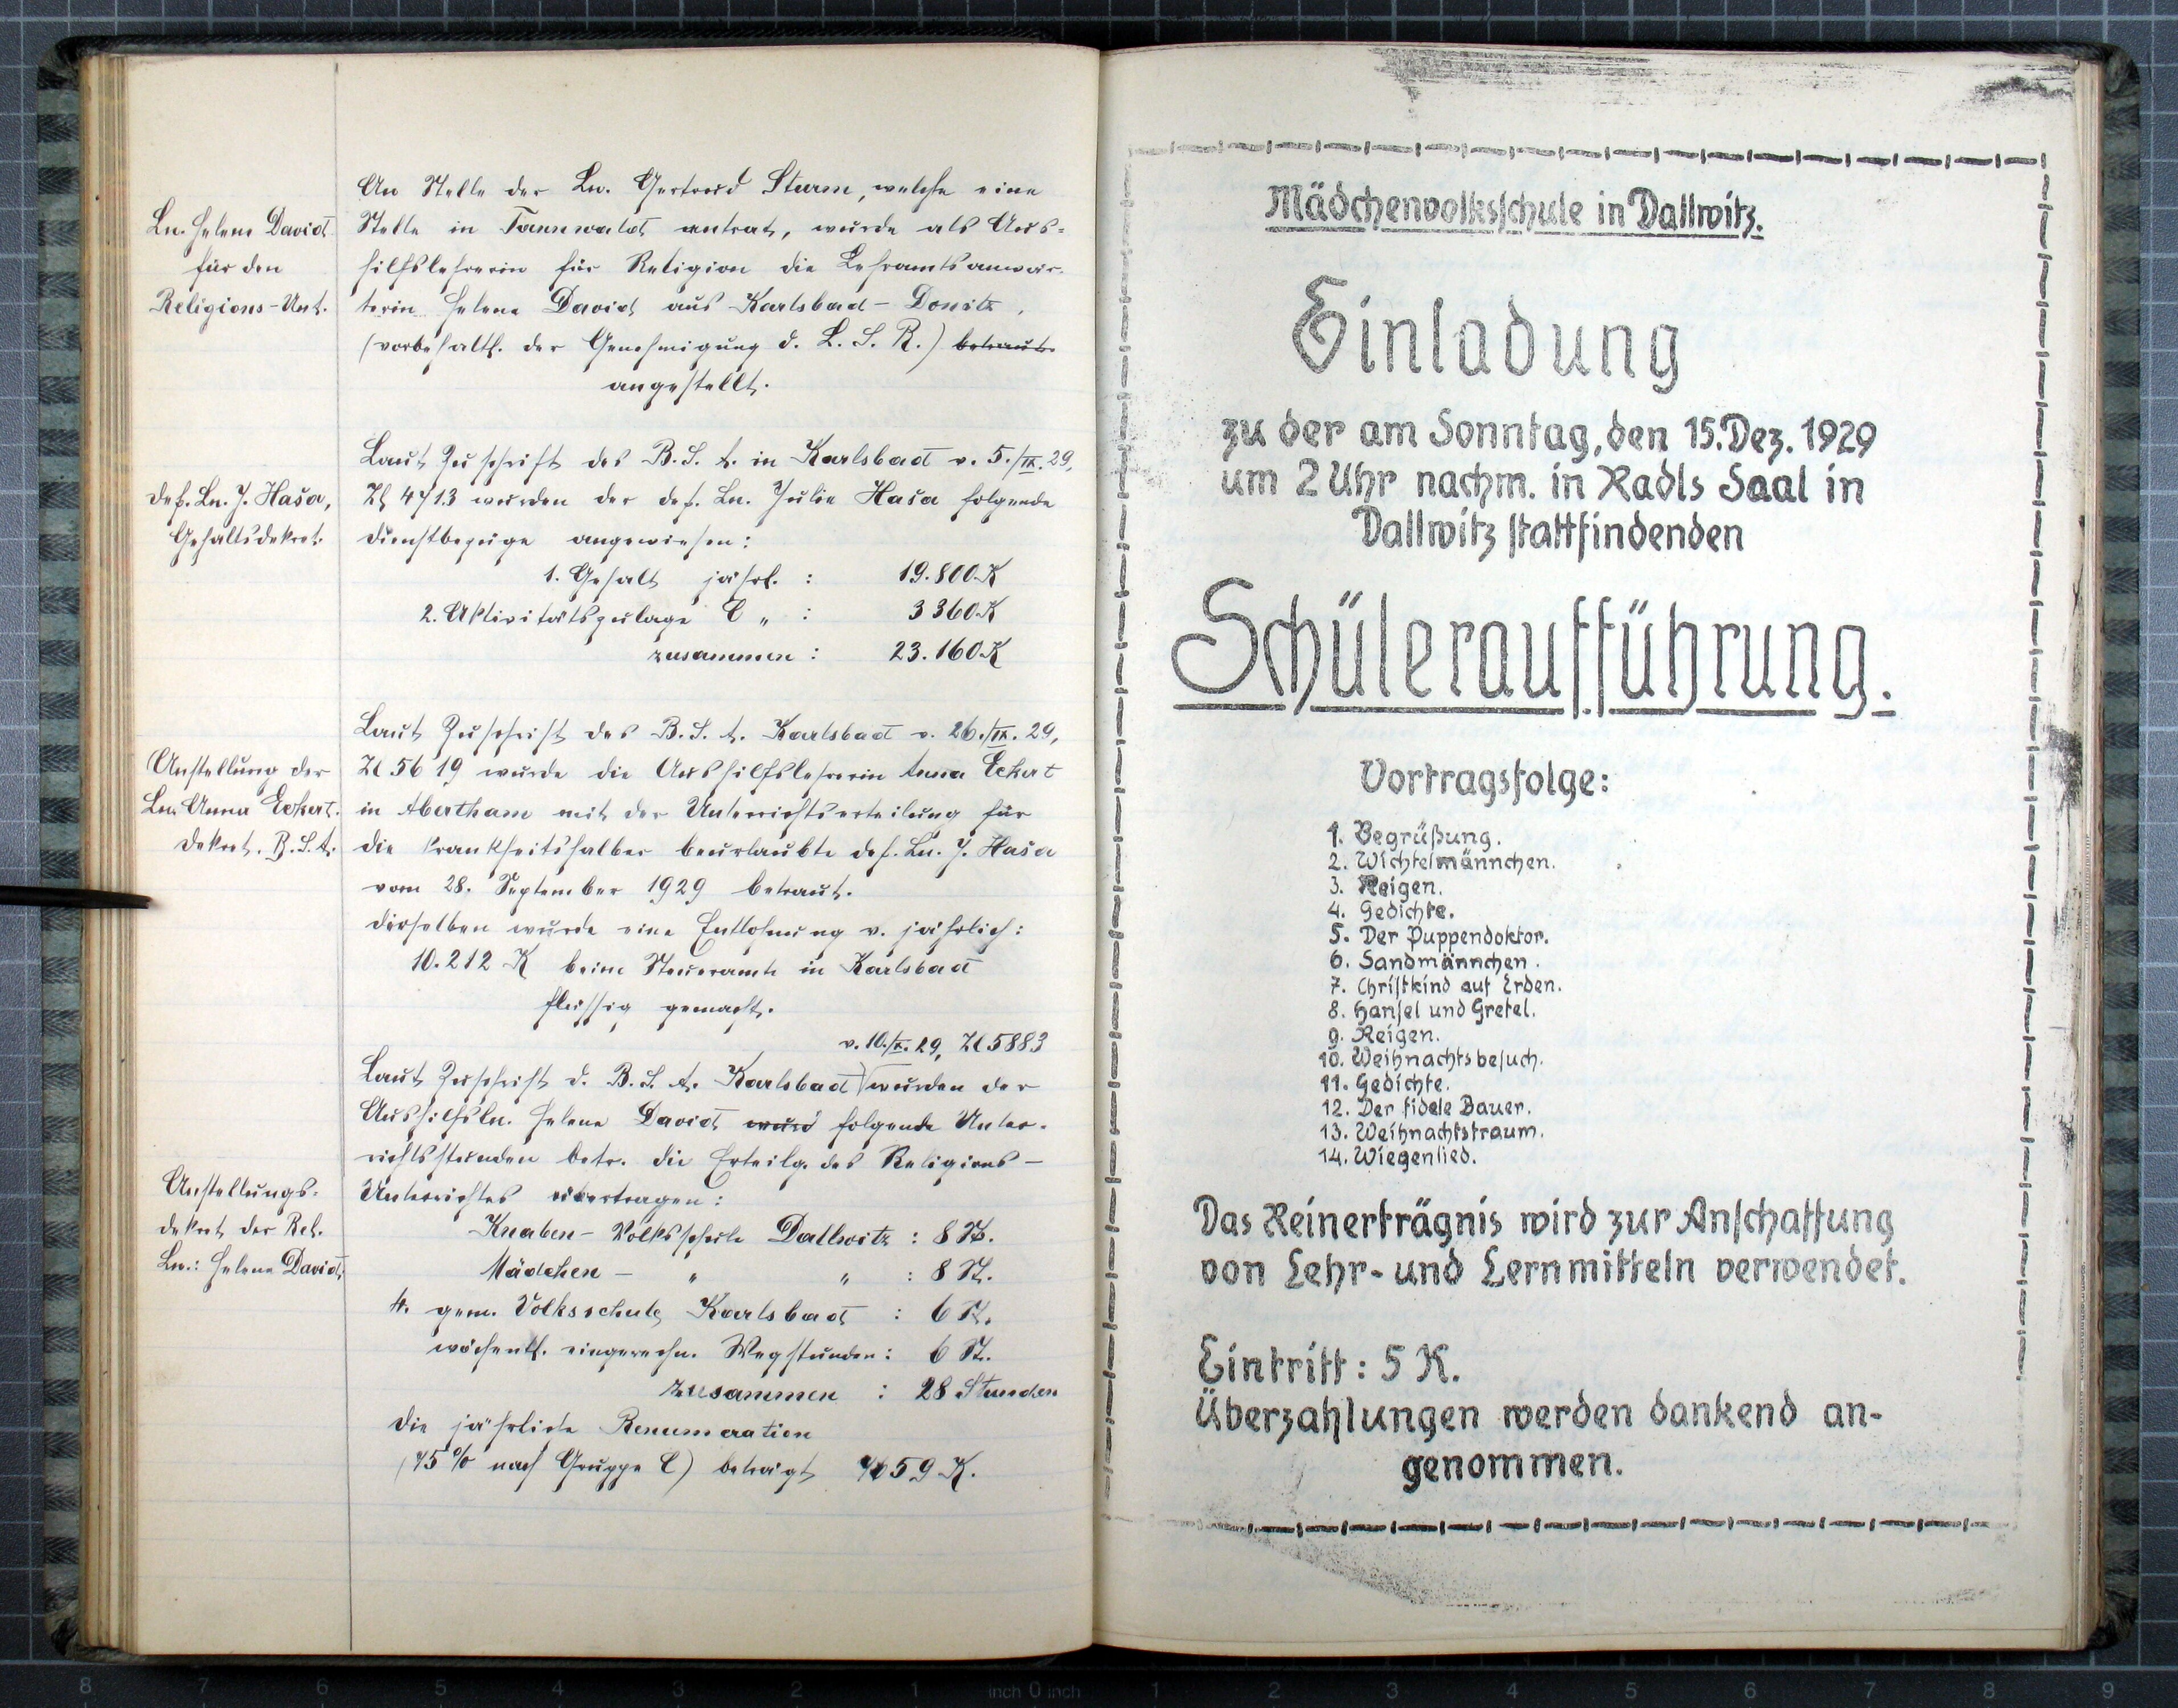 An Stelle der Ln. Gertrud Sturm, welche eine
Ln. Helene David
Stelle in Tannwald antrat, wurde als Aus-
für den
hilfslehrerin für Religion die Lehramtsanwär-
Religions-Unt.
terin Helene David aus Karlsbad - Donitz,
(vorbehaltl. der Genehmigung d. L. S. R.) betraut
angestellt.
Laut Zuschrift des B. S. A. in Karlsbad v. 5./IX. 29,
def. Ln. J. Haša,
Zl 4713 wurden der def. Ln. Julie Haša folgende
Gehaltsdekret.
Dienstbezüge angewiesen:
1. Gehalt jährl. : 19.800 K
2. Aktivitätszulage C „ : 3360 K
zusammen : 23.160 K
Laut Zuschrift des B. S. A. Karlsbad v. 26./IX. 29,
Anstellung der
Zl 5619 wurde die Aushilfslehrerin Anna Eckert
Ln. Anna Eckert.
in Abertham mit der Unterrichtserteilung für
Dekret. B. S. A.
die krankheitshalber beurlaubte def. Ln. J. Haša
vom 28. September 1929 betraut.
Derselben wurde eine Entlohnung v. jährlich:
10.212 K beim Steueramte in Karlsbad
flüssig gemacht.
v. 10./X. 29, Zl 5883
Laut Zuschrift d. B. S. A. Karlsbad wurden der
Aushilfsln. Helene David wurd folgende Unter-
richtsstunden betr. die Erteilg. des Religions-
Anstellungs-
Unterrichtes übertragen:
dekret der Rel.
Knaben - Volksschule Dallwitz : 8 St.
Ln.: Helene David.
Mädchen - „ „ : 8 St.
4. gem. Volksschule Karlsbad : 6 St.
wöchentl. eingerechn. Wegstunden: 6 St.
zusammen : 28 Stunden
Die jährliche Renumeration
(75% nach Gruppe C) beträgt K.
Mädchenvolksschule in Dallwitz.
Einladung
zu der am Sonntag, den 15. Dez. 1929
um 2 Uhr nachm. in Radls Saal in
Dallwitz stattfindenden
Schüleraufführung.
Vortragsfolge:
1. Begrüßung.
2. Wichtelmännchen.
3. Reigen.
4. Gedichte.
5. Der Puppendoktor.
6. Sandmännchen.
7. Christkind auf Erden.
8. Hansel und Gretel.
9. Reigen.
10. Weihnachtsbesuch.
11. Gedichte.
12. Der fidele Bauer.
13. Weihnachtstraum.
14. Wiegenlied.
Das Reinerträgnis wird zur Anschaffung
von Lehr- und Lernmitteln verwendet.
Eintritt: 5 K.
Überzahlungen werden dankend an-
genommen.
8 7 6 5 4 3 2 1 inch 0 inch 1 2 3 4 5 6 7 8 9